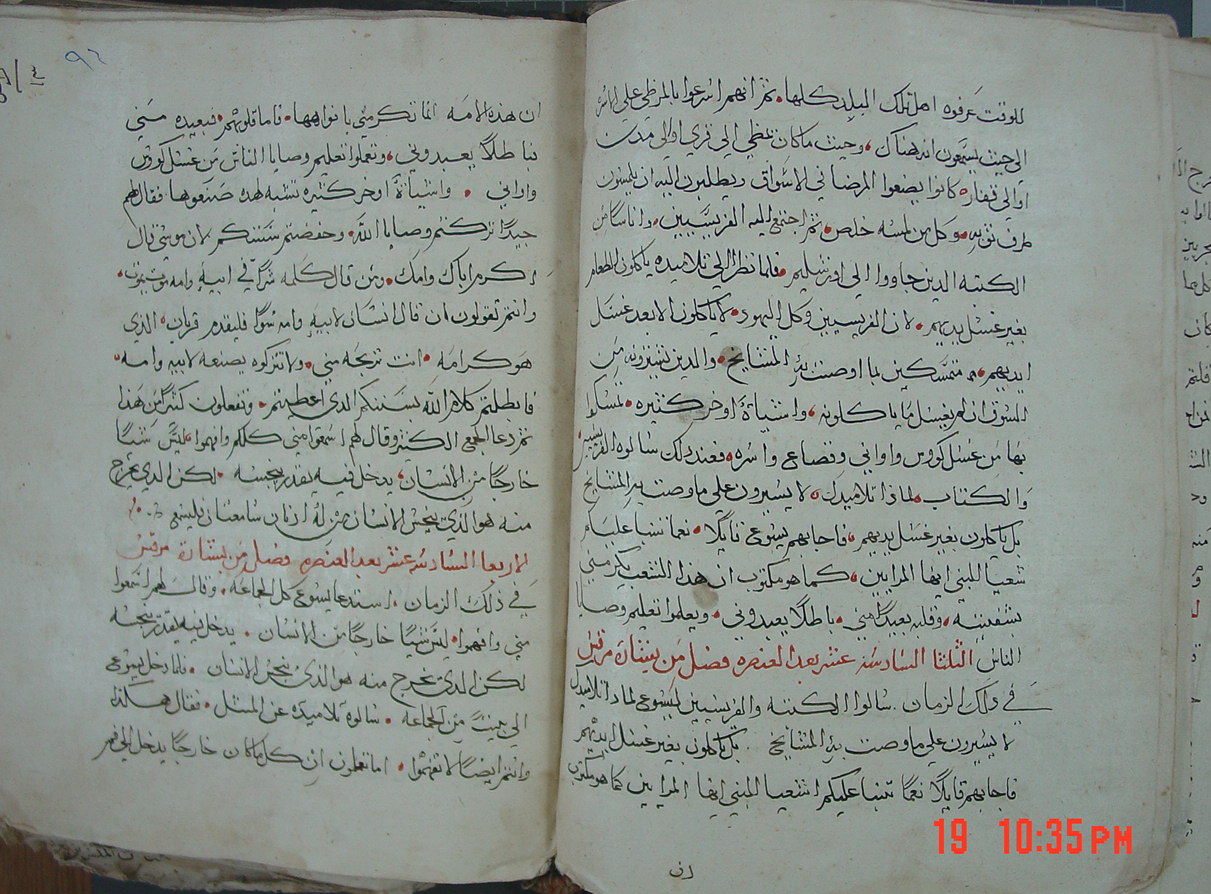 للوقت عرفوه اهل تلك البلد كلها. ثم انهم اسرعوا بالمرضي علي الاسره
الي حيث يسمعون انه هناك. وحيث ماكان يمضي الي قري او الي مدن
او الي قفاره كانوا يضعوا المرضا في الاسواق ويطلبون اليه ان يلمسون
طرف ثوبه. وكل من لمسه خلص. ثم اجتمع اليه الفريسيين. واناسا من
الكتبه الدين جاووا الي اورشليم. فلما نظرا الي تلاميده ياكلون الطعام
بغير غسل يديهم. لان الفريسيين وكل اليهود. لا ياكلون الا بعد غسل
ايديهم. متمسكين بما اوصت به المشايخ. والدين يشترونه من
السوق ان لم يغسل ما ياكلونه. واشياة اوخر كثيره. تمسكوا
بها من غسل كووس واواني وقصاع واسره. فعند دلك سالوه الفريسيين
والكتاب. لمادا تلاميدك. لا يسيرون علي ما وصت به المشايخ
بل ياكلون بغير غسل يديهم. فاجابهم يسوع قايلا. نعما تنبا عليكم
شعيا النبي ايها المرايين. كما هو مكتوب ان هدا الشعب يكرمني
بشفتيه. وقلبه بعيدا مني. باطلا يعبدوني. ويعلموا تعليم وصايا
الناس الثلثا السادسه عشر بعد العنصره فصل من بشارة مرقس
في دلك الزمان. سالوا الكتبه والفريسيين ليسوع لمادا تلاميدك
لا يسيرون علي ما وصت به المشايخ. بل ياكلون بغير غسل ايديهم
فاجابهم قايلا نعما تنبا عليكم اشعيا النبي ايها المرايين كما هو مكتوب
ان
٩٢
ان هده الامه انما تكرمني بافواهها. فاما قلوبهم. فبعيده مني
باطلا يعبدوني. وتعملوا تعليم وصايا الناس من غسل كووس
واواني. واشياة اوخر كتيره تشبه لهده صنعوها فقال لهم
جيدا تركتم وصايا الله. وحفضتم سنتكم لان موسي قال
اكرم اباك وامك. ومن قال كلمه شرا في ابيه وامه موت يموت.
وانتم تقولون ان قال انسان لابيه وامه سوا فليقدم قربان. الدي
هو كرامه. انت تربحه مني. ولا تتركوه يصنعه لابيه وامه.
فابطلتم كلام الله بسنتكم الدي اعطيتم. وتفعلون كثيرا من هدا
ثم دعا الجمع الكتير وقال لهم اسمعوا مني كلكم وافهموا. ليس شيا
خارجا من الانسان. يدخل فيه يقدر ينجسه. لكن الدي يخرج
منه هو الدي ينجس الانسان من له ادنان سامعتان فليسمع
الاربعا السادسه عشر بعد العنصره فصل من بشارة مرقس
في دلك الزمان. استدعا يسوع كل الجماعه. وقال لهم اسمعوا
مني وافهموا. ليس شيا خارجا من الانسان. يدخل فيه يقدر ينجسه
لكن الدي يخرج منه هو الدي ينجس الانسان. فلما دخل يسوع
الي بيت من الجماعه. سالوه تلاميده عن المثل. فقال هاكدا
وانتم ايضا لا تفهموا. اما تعلمون ان كل ماكان خارجا يدخل الي فم
19 10:35 PM